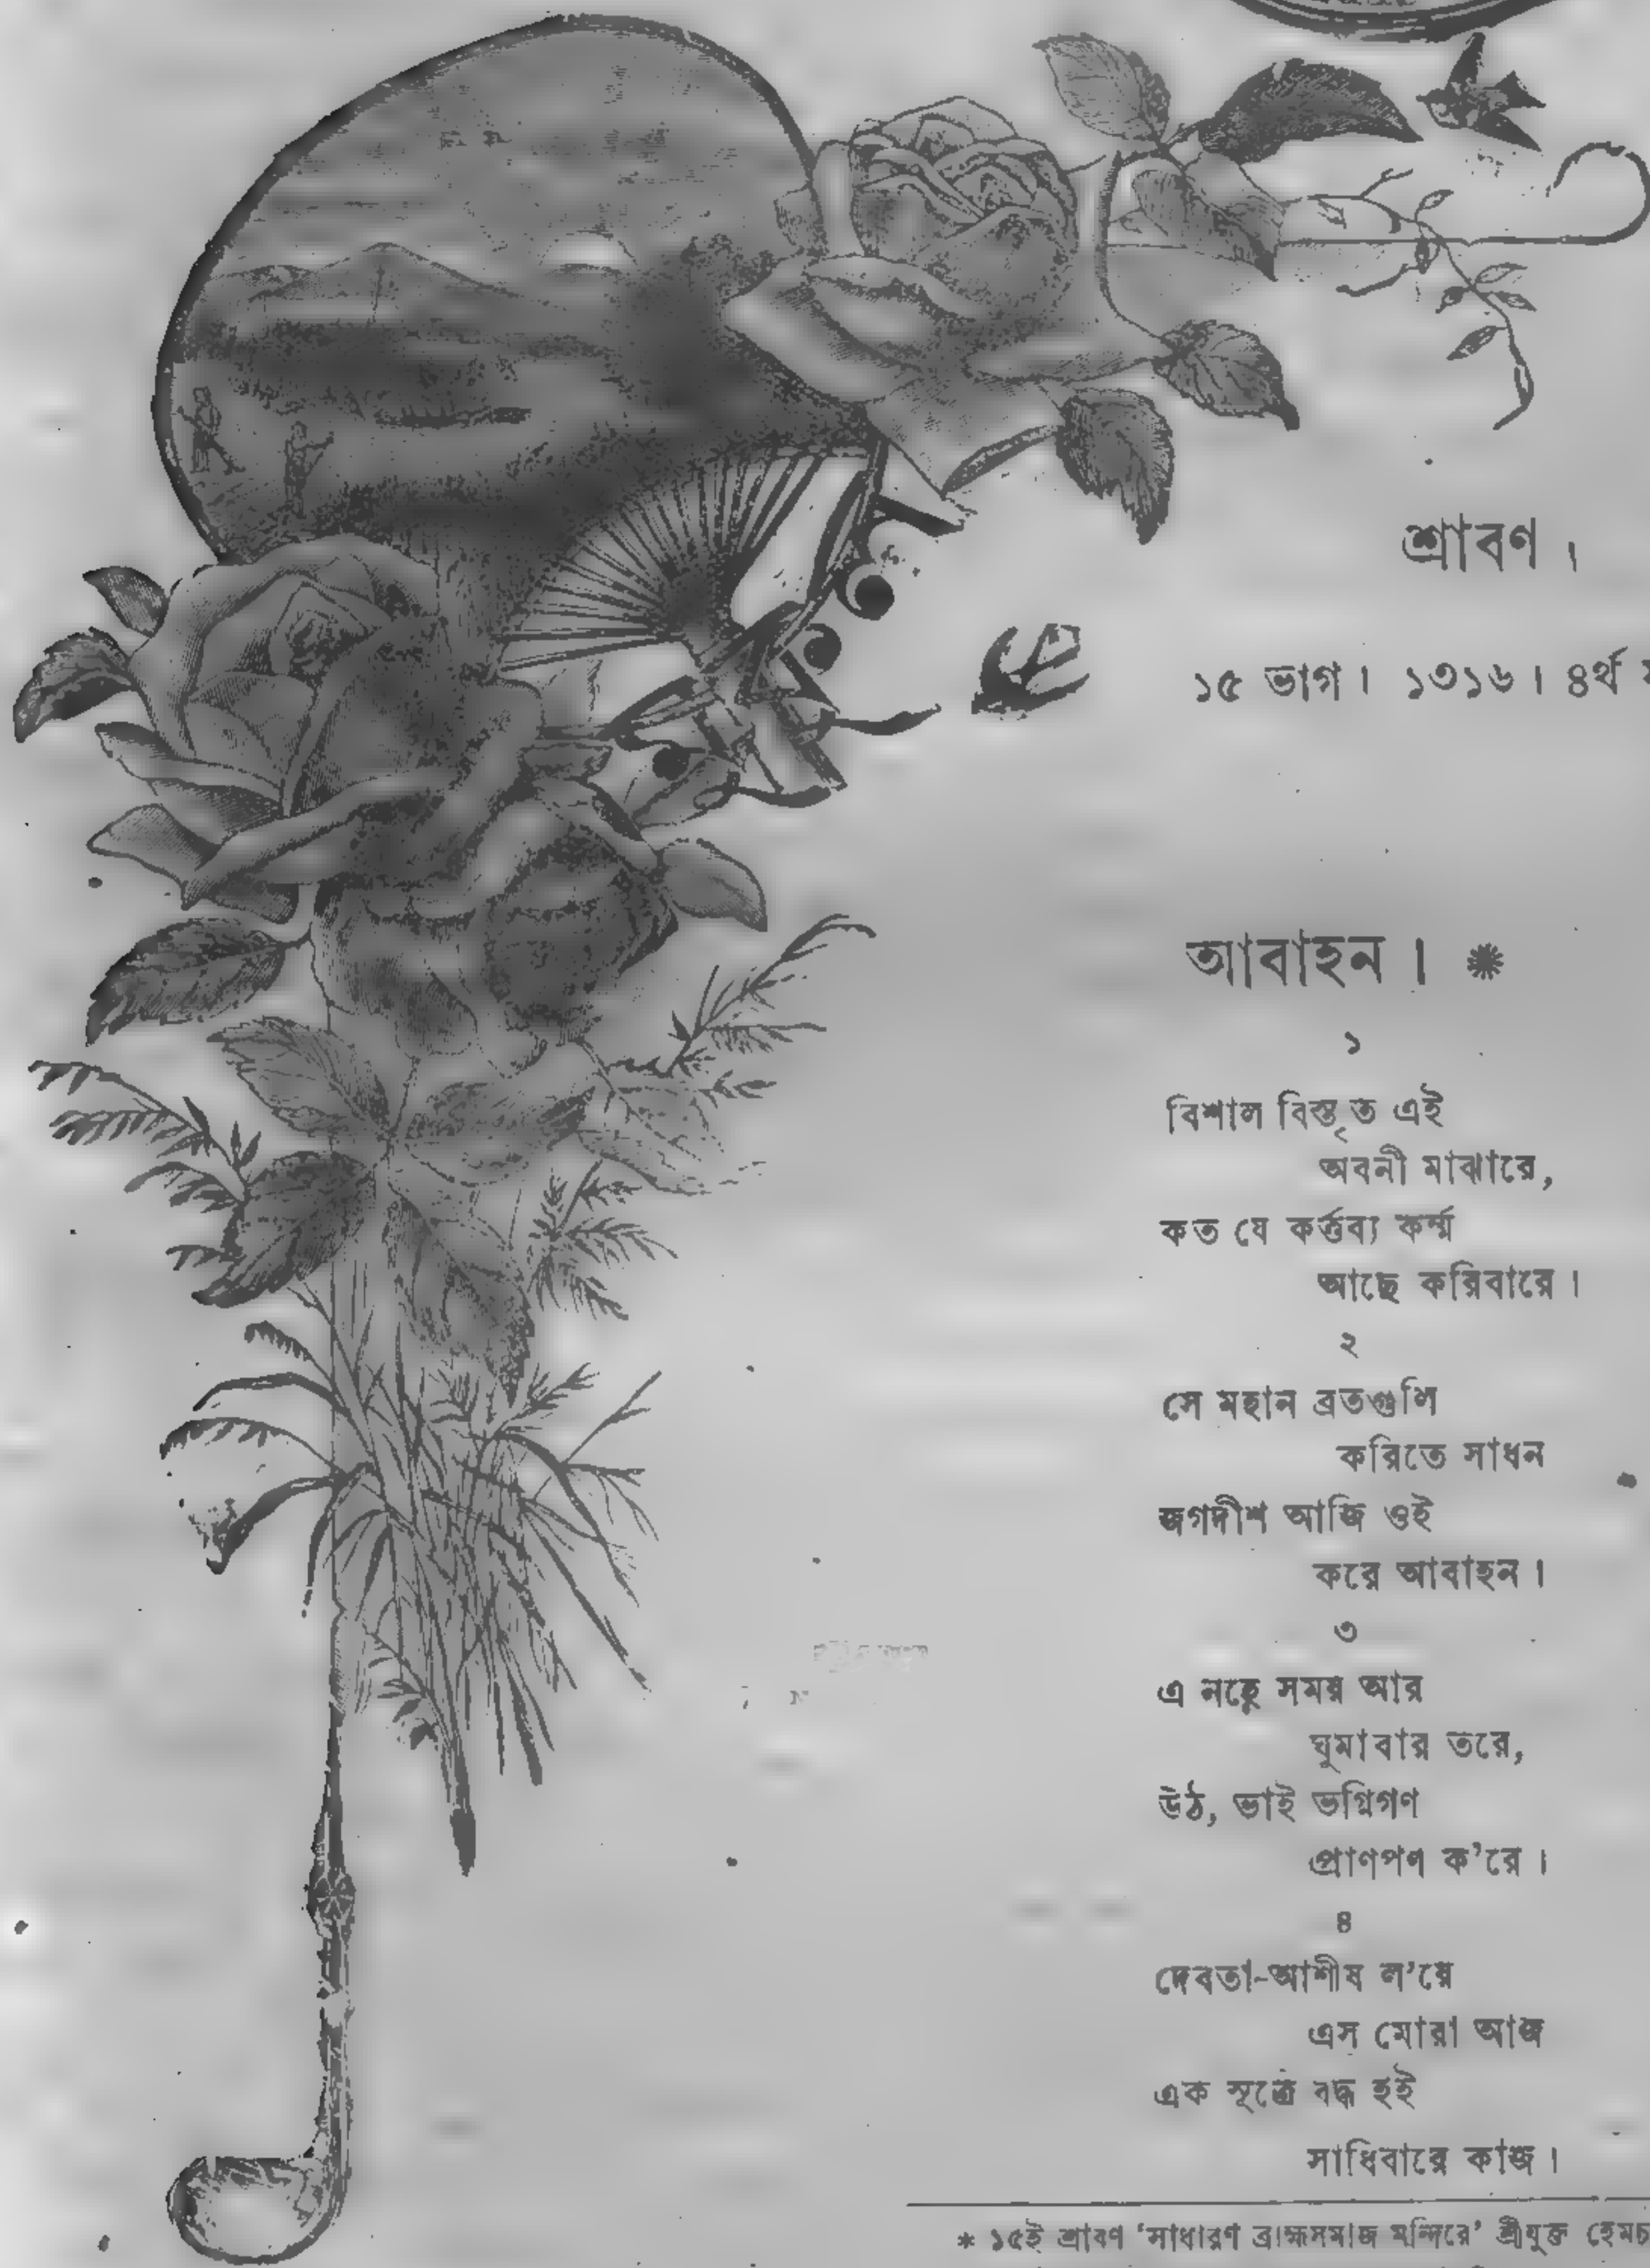 শ্রাবণ।
১৫ ভাগ। ১৩১৬। ৪র্থ
আবাহন। *
১
বিশাল বিস্তৃত এই
অবনী মাঝারে,
কত যে কর্ত্তব্য কর্ম্ম
আছে করিবারে।
২
সে মহান ব্রতগুলি
করিতে সাধন
জগদীশ আজি ওই
করে আবাহন।
৩
এ নহে সময় আর
ঘুমাবার তরে,
উঠ, ভাই ভগ্নিগণ
প্রাণপণ ক'রে।
৪
দেবতা-আশীষ ল'য়ে
এস মোরা আজ
এক সূত্রে বদ্ধ হই
সাধিবারে কাজ।
* ১৫ই শ্রাবণ ‘সাধারণ ব্রাহ্মসমাজ মন্দিরে’ শ্রীযুক্ত হেমচ